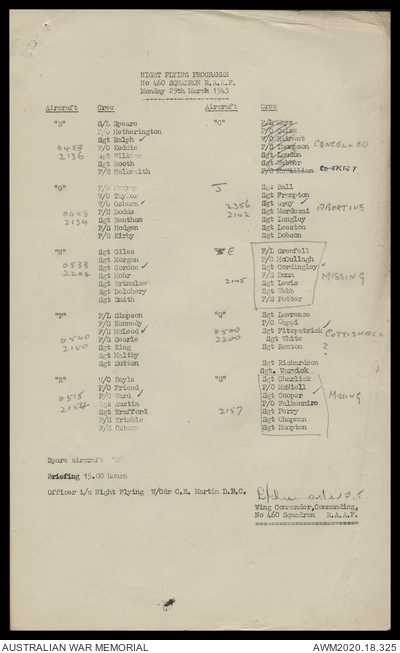 NIGHT FLYING PROGRAMME
No 460 SQUADRON R.A.A.F.
Monday 29th March 1943
Aircraft Crew Aircraft Crew
"B" S/L Speare
F/O Hetherington
Sgt Ralph
F/O Haddie
Sgt Wilkins
Sgt Booth
F/S Calcraith
2136
"G"
W/O Taylor
F/O Osborn
F/S Dodds
Sgt Bentham
F/S Hodgen
F/S Kirby
2134
"N" Sgt Giles
Sgt Morgan
Sgt Gordon
Sgt Mohr
Sgt Brimelow
Sgt Delohery
Sgt Smith
0533
2204
"P" F/L Simpson
F/S Kennedy
F/S McLeod
F/S Searle
Sgt King
Sgt Maltby
Sgt Sutton
0540
2150
"R" W/O Boyle
F/O Friend
F/S Ward
Sgt Austin
Sgt Trafford
F/S Trimble
F/S Osborn
0515
2154
"C"
F/O Quick
F/S Thompson
Sgt Loudon
CANCELLED
J
Sgt Ball
Sgt Frempton
Sgt Spey
Sgt Mordecai
Sgt Langley
Sgt Leeston
Sgt Dobson
2356
2142
ABORTIVE
E
F/L Grenfell
F/O McCullagh
Sgt Cordingley
F/S Dunn
Sgt Lewis
Sgt Webb
F/S Potter
2145
MISSING
"Q" Sgt Lawrence
F/O Cappi
Sgt Fitzpatrick
Sgt White
Sgt Reaton
?
Sgt Richardson
Sgt. Warwick
0500
2200
COTTISHALL
"S" Sgt Charlick
F/O McNiell
Sgt Cooper
P/O Falkenmire
Sgt Perry
Sgt Chapman
Sgt Hempton
2157
MISSING
Spare aircraft
Briefing 15.00 hours
Officer i/c Night Flying W/Cdr C.E. Martin D.F.C.
Wing Commander, Commanding,
No 460 Squadron R.A.A.F.
AUSTRALIAN WAR MEMORIAL
AWM2020.18.325